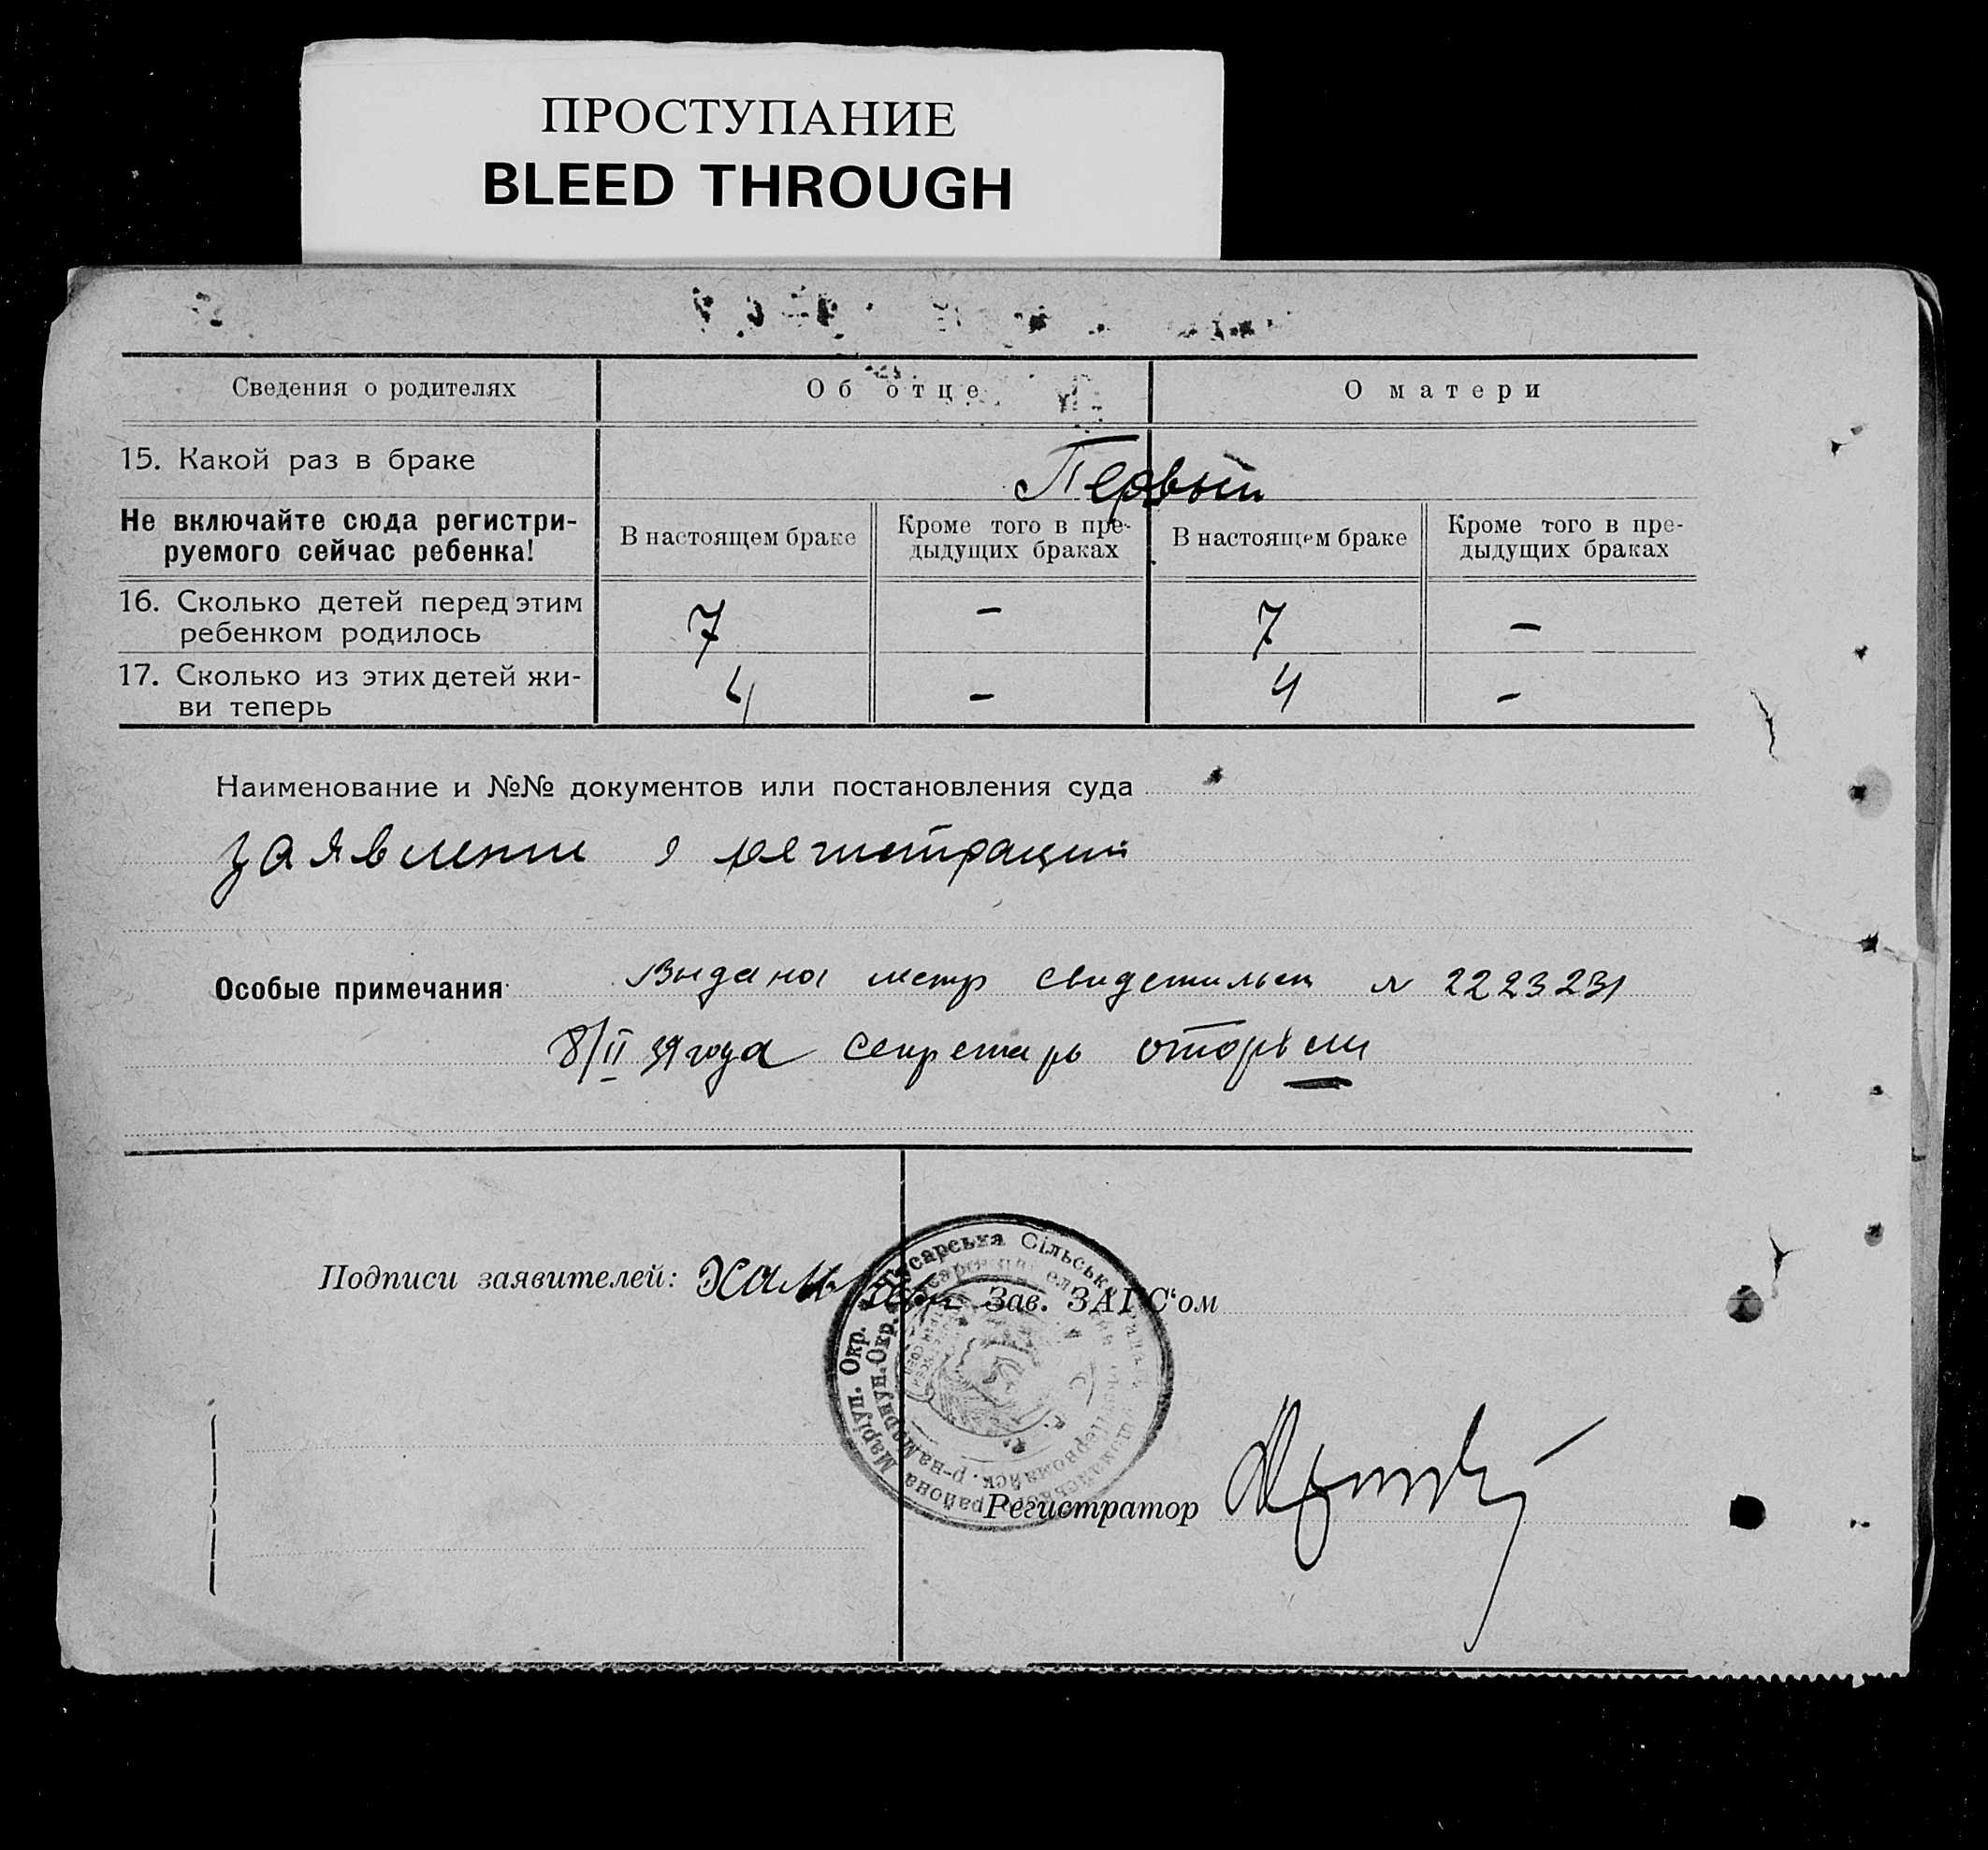 ПРОСТУПАНИЕ
BLEED THROUGH
Сведения о родителях Об отце О матери
15. Какой раз в браке Первый
Не включайте сюда регистри-
руемого сейчас ребенка!
В настоящем браке Кроме того в пре-
дыдущих браках В настоящем браке Кроме того в пре-
дыдущих браках
16. Сколько детей перед этим
ребенком родилось 7 – 7 –
17. Сколько из этих детей жи-
ви теперь 4 – 4 –
Наименование и №№ документов или постановления суда
заявление о регистрации
Особые примечания Выдана метр свидетельст № 2223231
8/II 39 года секретарь
Подписи заявителей: Зав. ЗАГС‘ом
Маріуп. Окр. Сільська Рада района
Мариуп. Окр. Первомайск. р-на
Регистратор